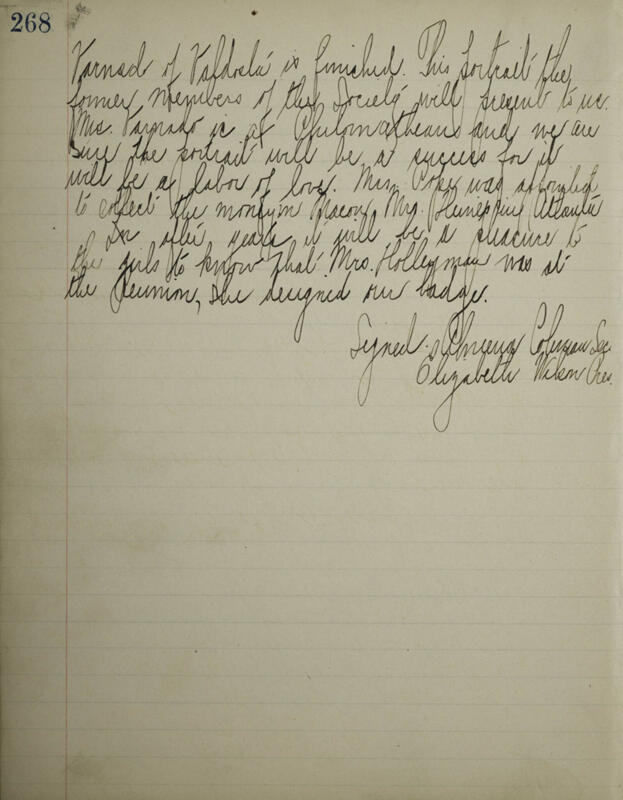 268
Varnado of Valdosta is finished. This portrait the
former members of the Society will present to us.
Mrs. Varnado is a Philomathean and we are
sure the portrait will be a success for it
will be a labor of love. Mrs. Cope was appointed
to collect the money in Macon, Mrs. in Atlanta
In after years it will be a pleasure to
the girls to know that Mrs. Holleyman was at
the Reunion, she designed our badge.
Signed: Coleman Sec.
Elizabeth Wilson Pres.